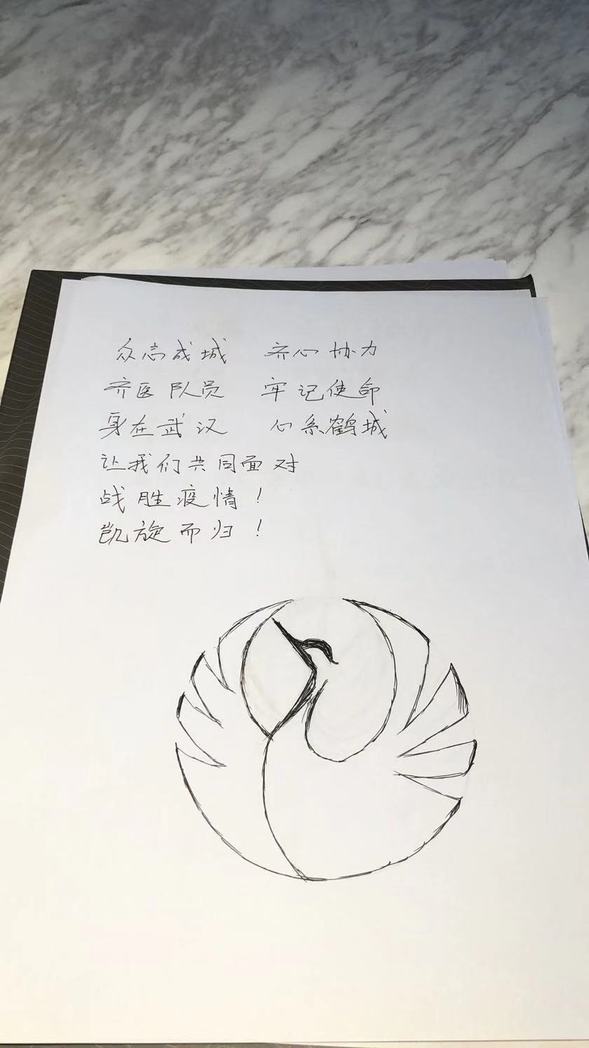 众志成城 齐心协力
齐医队员 牢记使命
身在武汉 心系鹤城
让我们共同面对
战胜疫情！
凯旋而归！